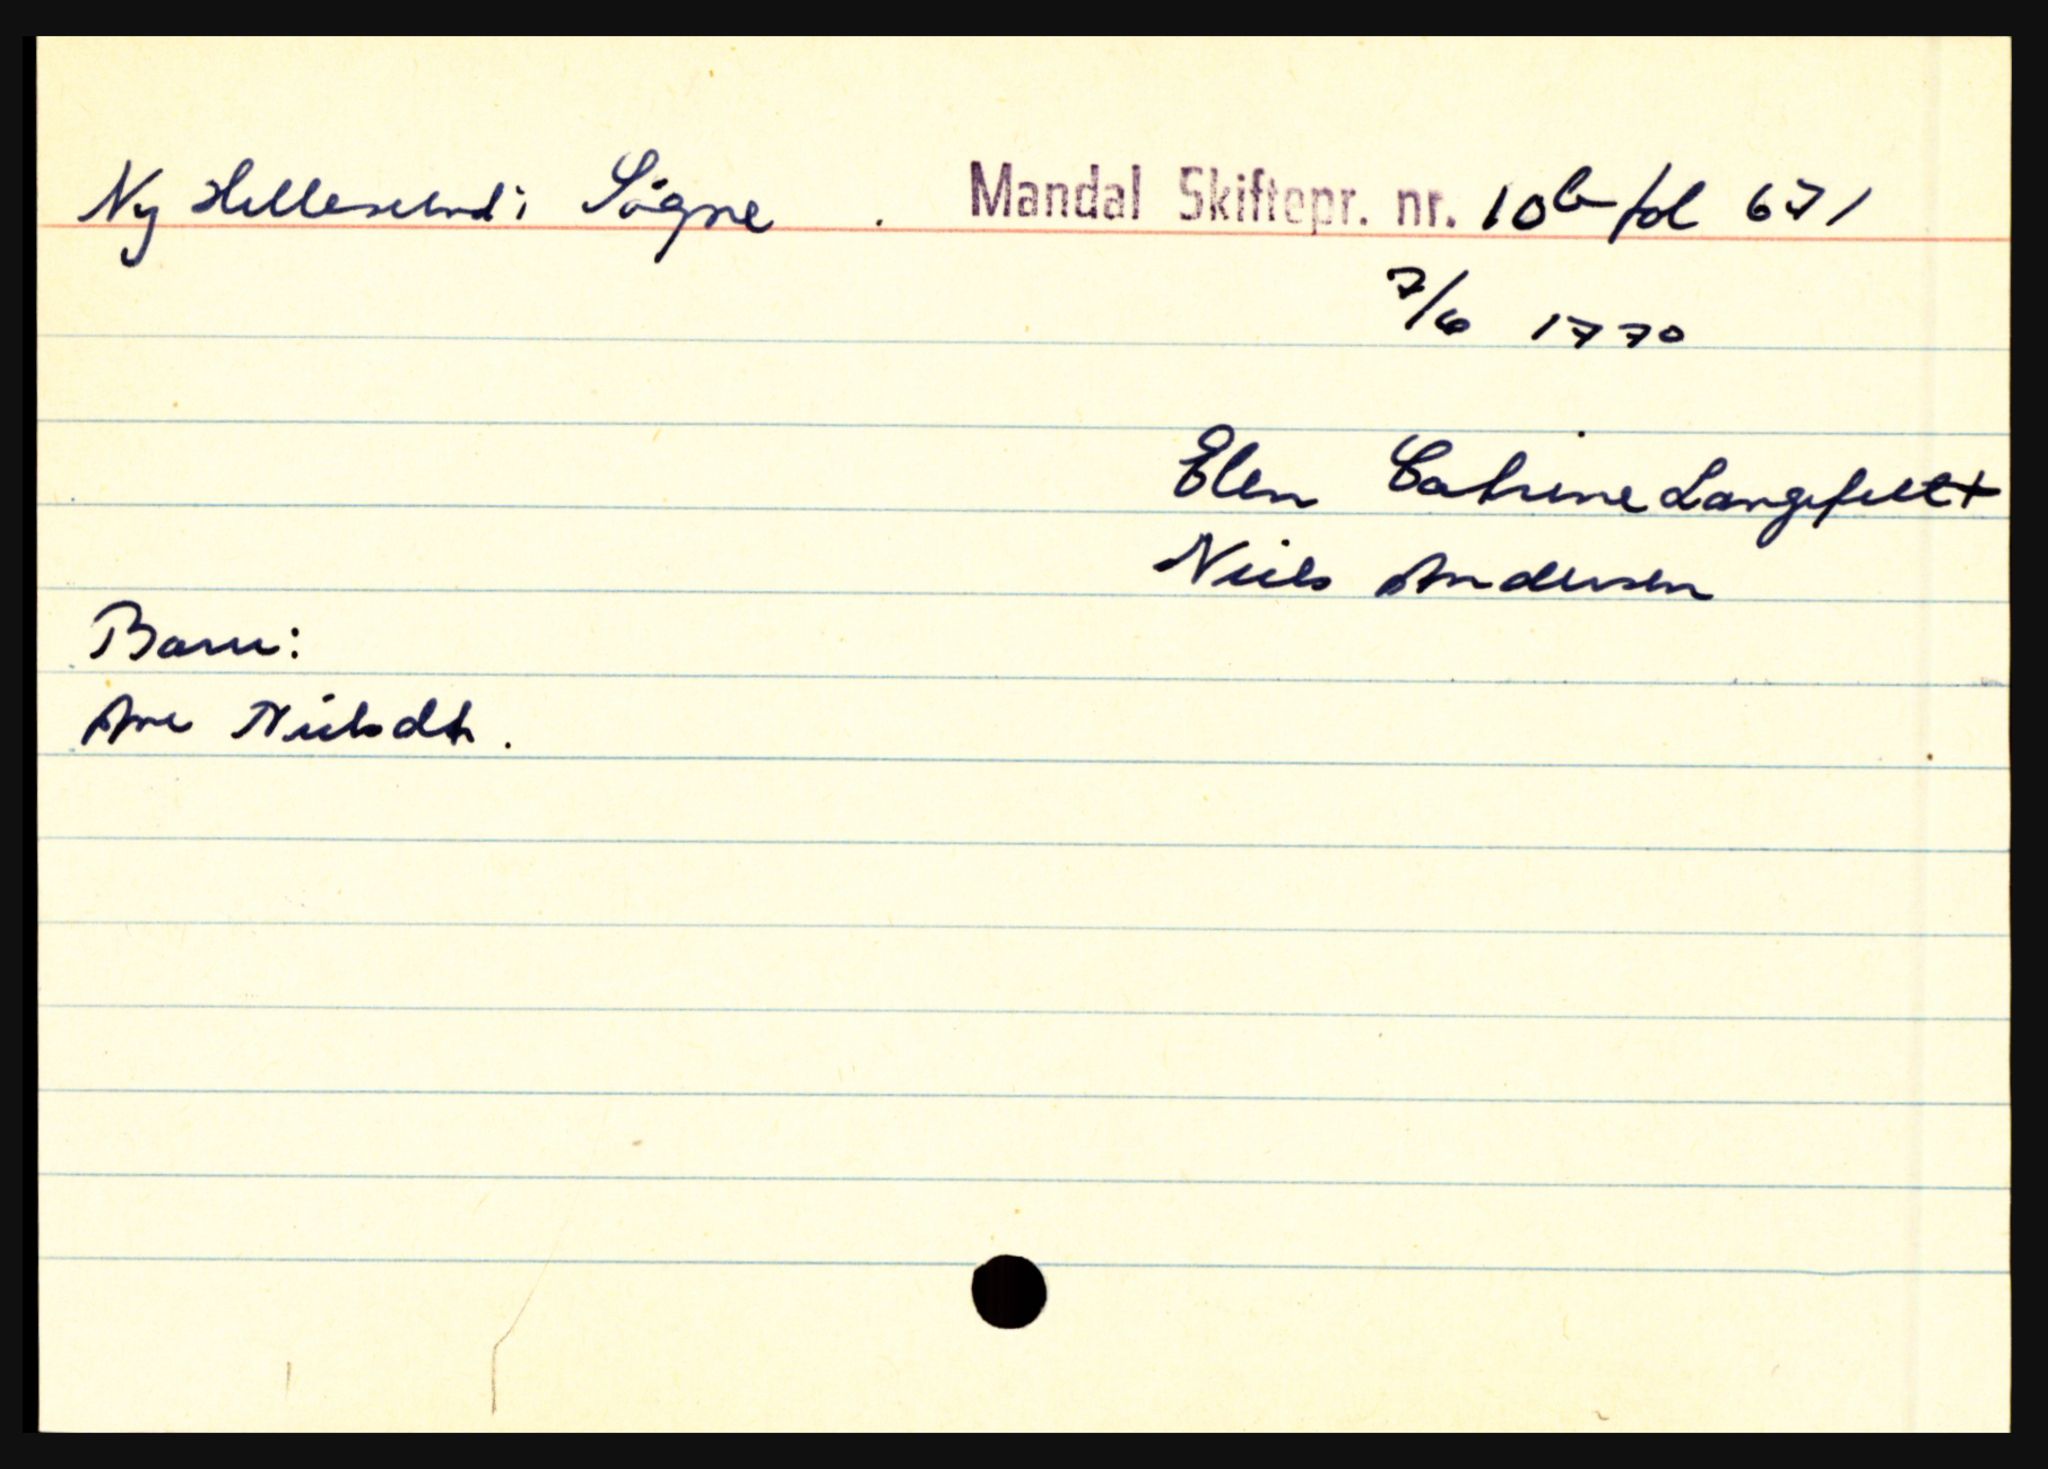 Ny Hellesund i Søgne . Mandal Skiftepr. nr. 10b fol 671
7/6 1770
Elen Catrine Langefelt +
Niels Andersen
Barn:
Ane Nielsdtr.